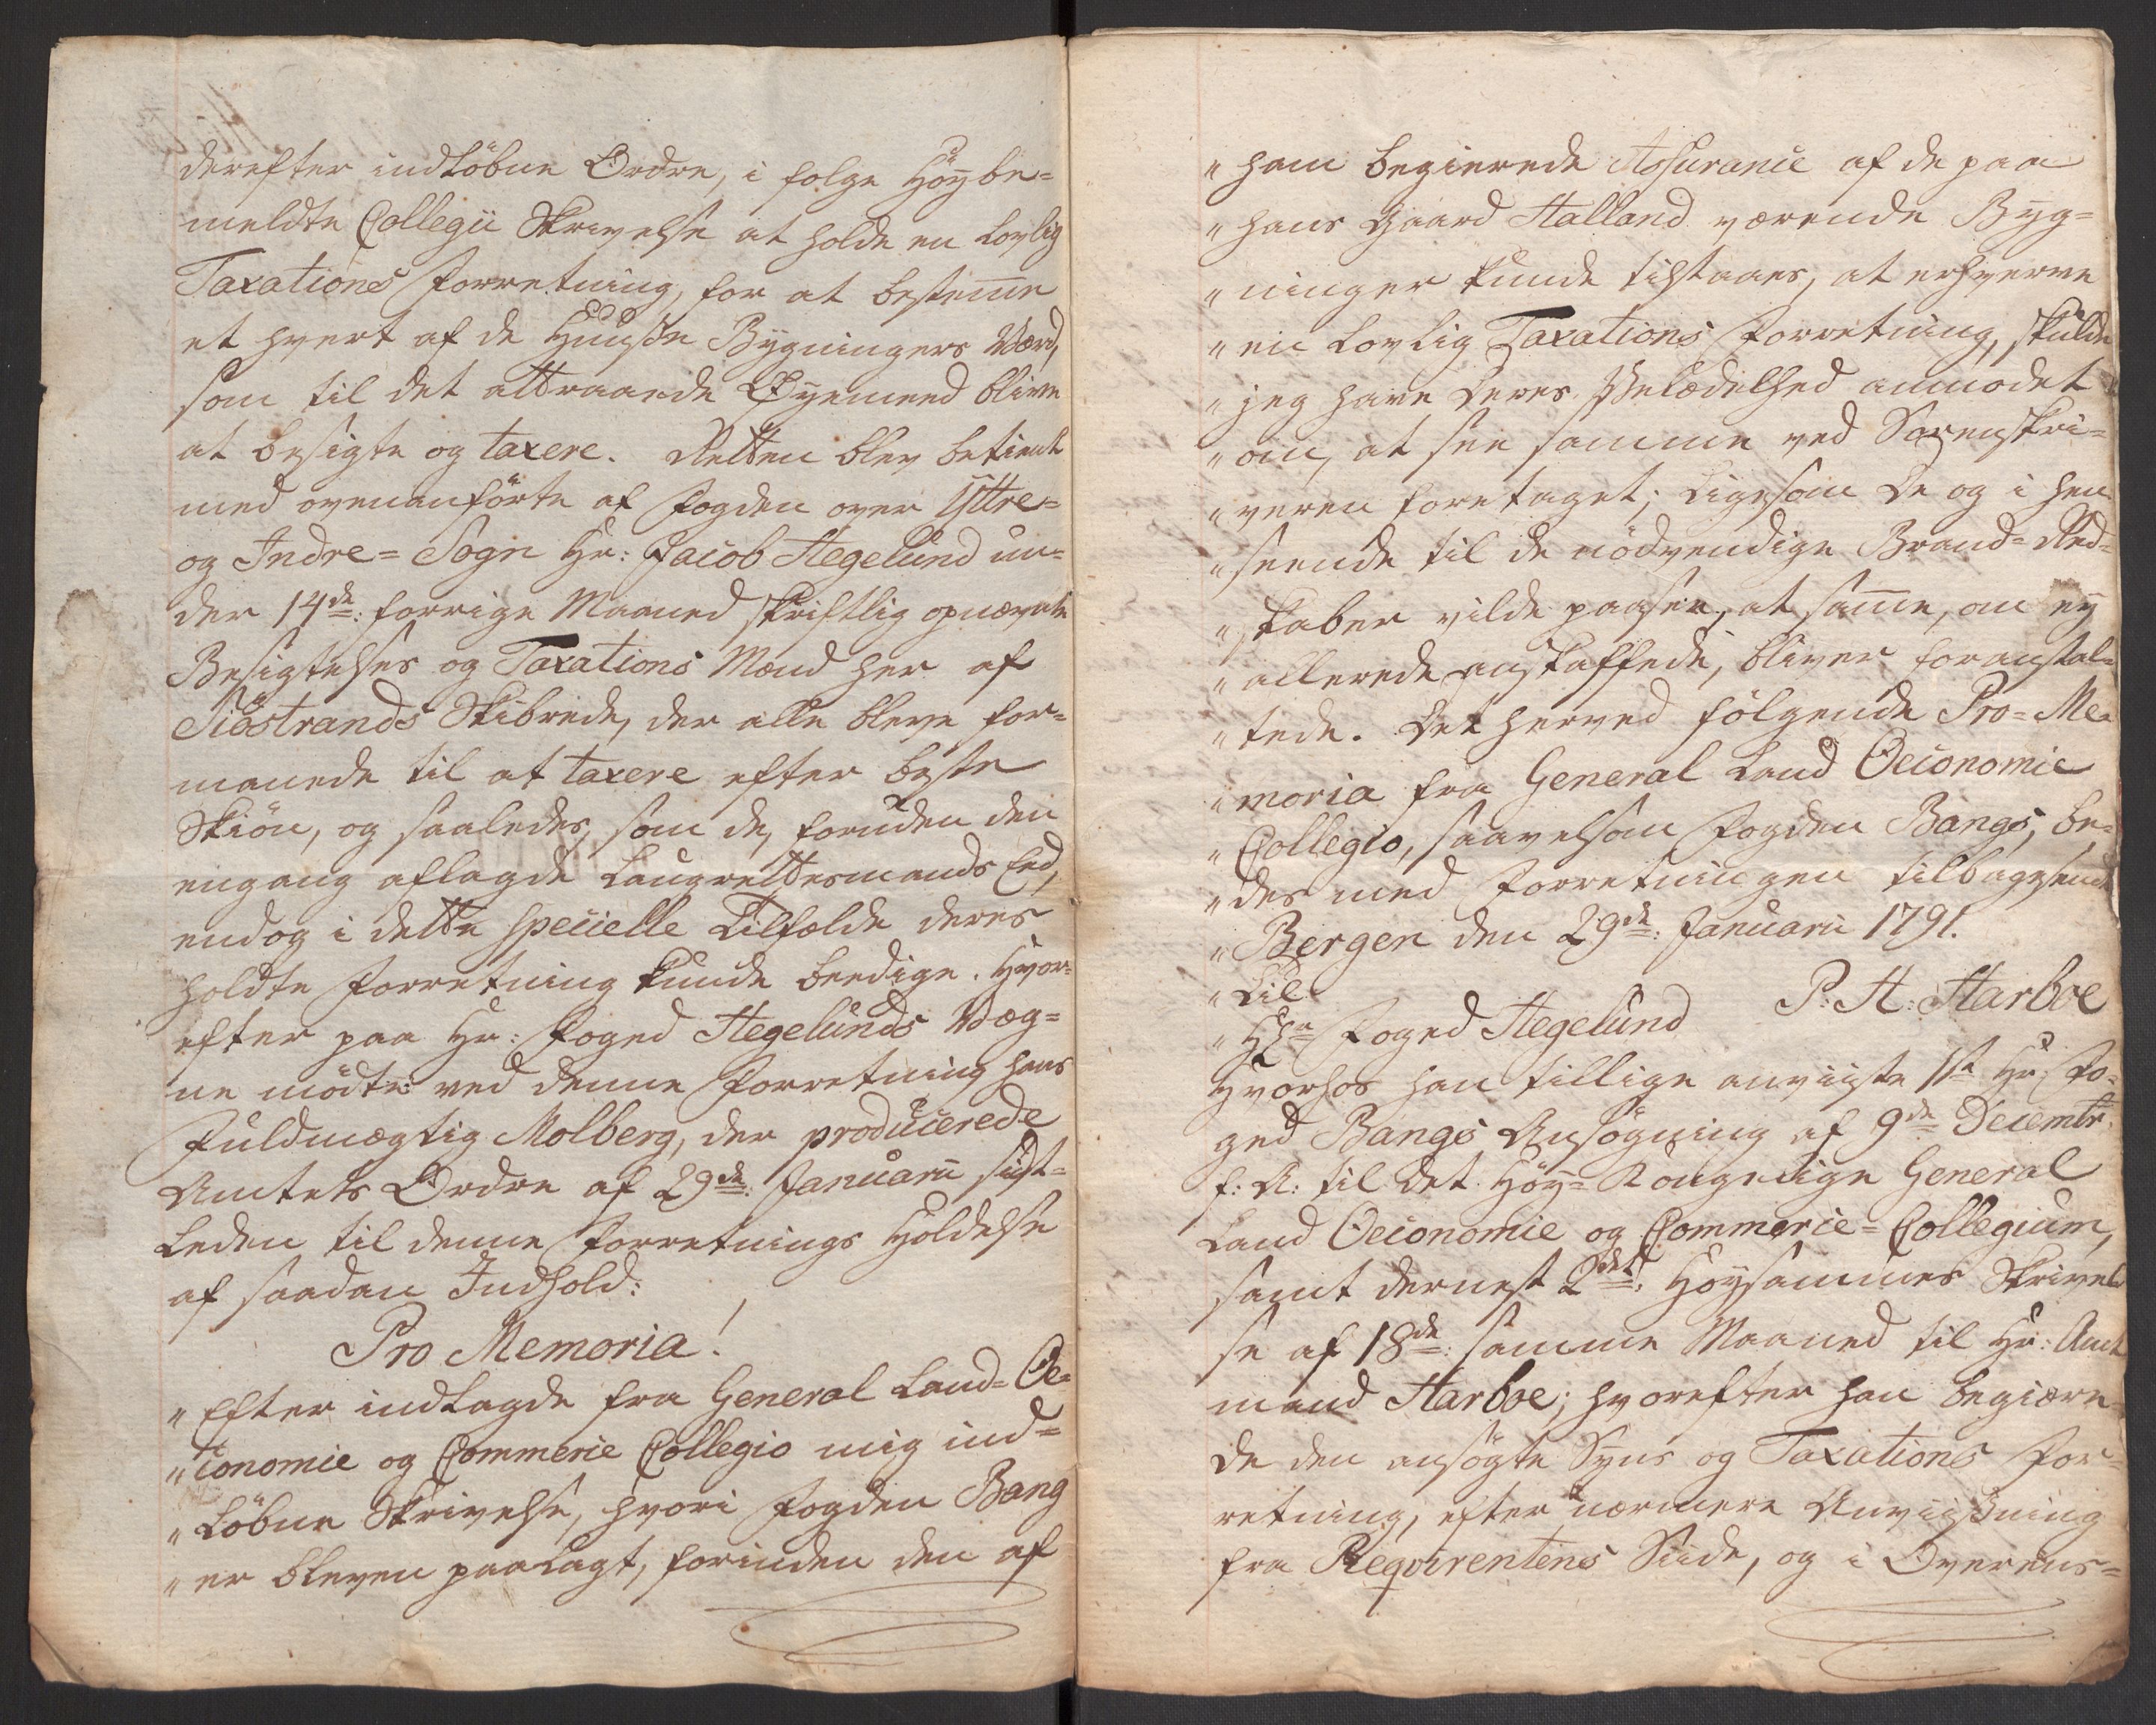 derefter indløbne Ordre, i følge Høybe=
meldte Collegii Skrivelse at holde en lovlig
Taxations Forretning, for at bestem̄e
et hvert af de Huuse Bygningers Værd,
som til det attraaede Øyemeed blive
at besigte og taxere. Retten blev betient
med ovenanførte af Fogden over Ÿttre=
og Indre= Sogn Hr: Jacob Hegelund un=
der 14de: forrige Maaned skriftlig opnævnte
Besigtelses og Taxations Mænd her af
Siöstrands Skibrede, der alle bleve for=
manede til at taxere efter beste
Skiön, og saaledes, som de, foruden den
engang aflagde Laugrettesmands Eed,
endog i dette specielle Tilfælde deres
holdte Forretning kunde beedige. Hvor=
efter paa Hr: Foged Hegelunds Væg=
ne mödte ved denne Forretning hans
Fuldmægtig Molberg, der producerede
Amtets Ordre af 29de: Januarii sidst=
leden til denne Forretnings Holdelse
af saadan Indhold:
Pro Memoria!
" Efter indlagde fra General Land= Oe=
" conomie og Commerce Collegio mig ind=
" løbne Skrivelse, hvori Fogden Bang
" er bleven paalagt, forinden den af
" ham begierede Assurance af de paa
" hans Gaard Halland værende Byg=
" ninger kunde tilstaaes, at erhverve
" en lovlig Taxations Forretning, skulde
" jeg have Deres Velædelhed anmodet
" om, at see samme ved Sorenskri=
" veren foretaget; ligesom De og i hen
" seende til de nödvendige Brand= Red=
" skaber vilde paasee, at sam̄e, om eÿ
" allerede anskaffede, bliver foranstal=
" tede. Det herved fölgende Pro= Me=
" moria fra General Land Oeconomie
" Collegio, saavelsom Fogden Bangs, be=
" des med Forretningen tilbagesendt
" Bergen den 29de: Januarii 1791.
" Til
P: H: Harboe
" Hr Foged Hegelund
hvorhos han tillige anviiste 1ste Hr: Fo=
ged Bangs Ansögning af 9de Decembr.
f: A: til det Höÿ= Kongelige General
Land Oeconomie og Commerce= Collegium,
samt dernest 2det: Höysammes Skrivel=
se af 18de: samme Maaned til Hr: Amt
mand Harboe; hvorefter han begiære=
de den ansögte Syns og Taxations For=
retning, efter nærmere Anviisning
fra Reqvirentens Siide, og i Overeens=